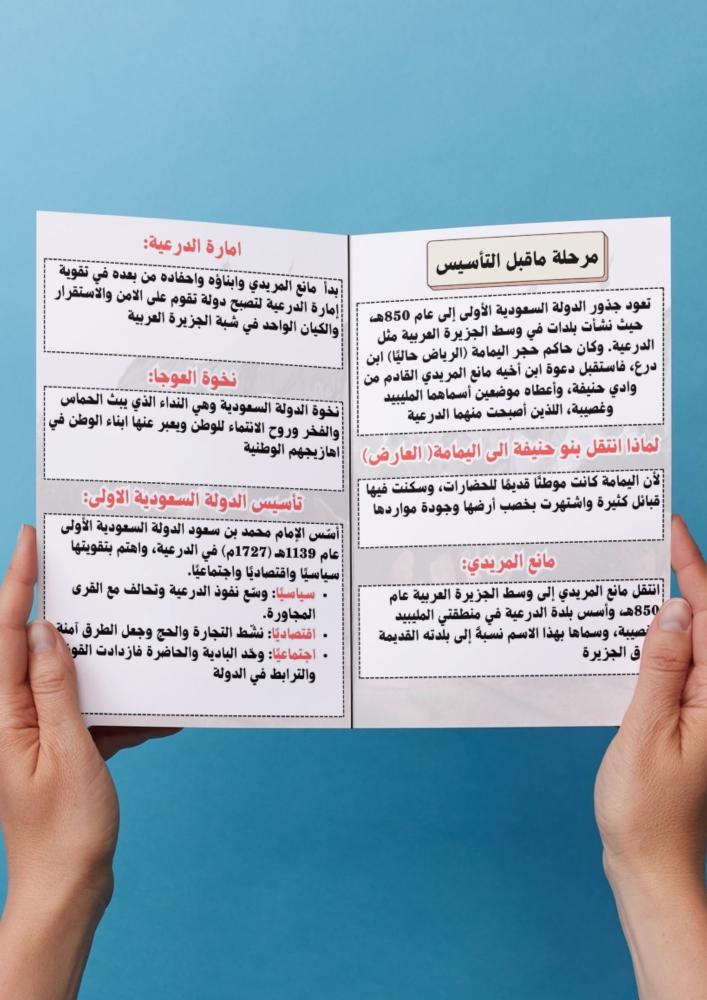 مرحلة ماقبل التأسيس
تعود جذور الدولة السعودية الأولى إلى عام 850هـ،
حيث نشأت بلدات في وسط الجزيرة العربية مثل
الدرعية. وكان حاكم حجر اليمامة (الرياض حاليًا) ابن
درع، فاستقبل دعوة ابن أخيه مانع المريدي القادم من
وادي حنيفة، وأعطاه موضعين أسماهما المليبيد
وغصيبة، اللذين أصبحت منهما الدرعية
لماذا انتقل بنو حنيفة الى اليمامة( العارض)
لأن اليمامة كانت موطنًا قديمًا للحضارات، وسكنت فيها
قبائل كثيرة واشتهرت بخصب أرضها وجودة مواردها
مانع المريدي:
انتقل مانع المريدي إلى وسط الجزيرة العربية عام
850هـ، وأسس بلدة الدرعية في منطقتي المليبيد
وسماها بهذا الاسم نسبةً إلى بلدته القديمة
الجزيرة
امارة الدرعية:
بدأ مانع المريدي وابناؤه واحفاده من بعده في تقوية
إمارة الدرعية لتصبح دولة تقوم على الامن والاستقرار
والكيان الواحد في شبة الجزيرة العربية
نخوة العوجا:
نخوة الدولة السعودية وهي النداء الذي يبث الحماس
والفخر وروح الانتماء للوطن ويعبر عنها ابناء الوطن في
اهازيجهم الوطنية
تأسيس الدولة السعودية الاولى:
أسّس الإمام محمد بن سعود الدولة السعودية الأولى
عام 1139هـ (1727م) في الدرعية، واهتم بتقويتها
سياسيًا واقتصاديًا واجتماعيًا.
• سياسيًا: وسّع نفوذ الدرعية وتحالف مع القرى
المجاورة.
• اقتصاديًا: نشّط التجارة والحج وجعل الطرق آمنة
• اجتماعيًا: وحّد البادية والحاضرة فازدادت
والترابط في الدولة